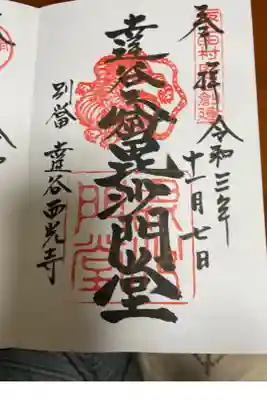 奉拝
令和三年
十一月七日
達谷窟毘沙門堂
別當 達谷西光寺